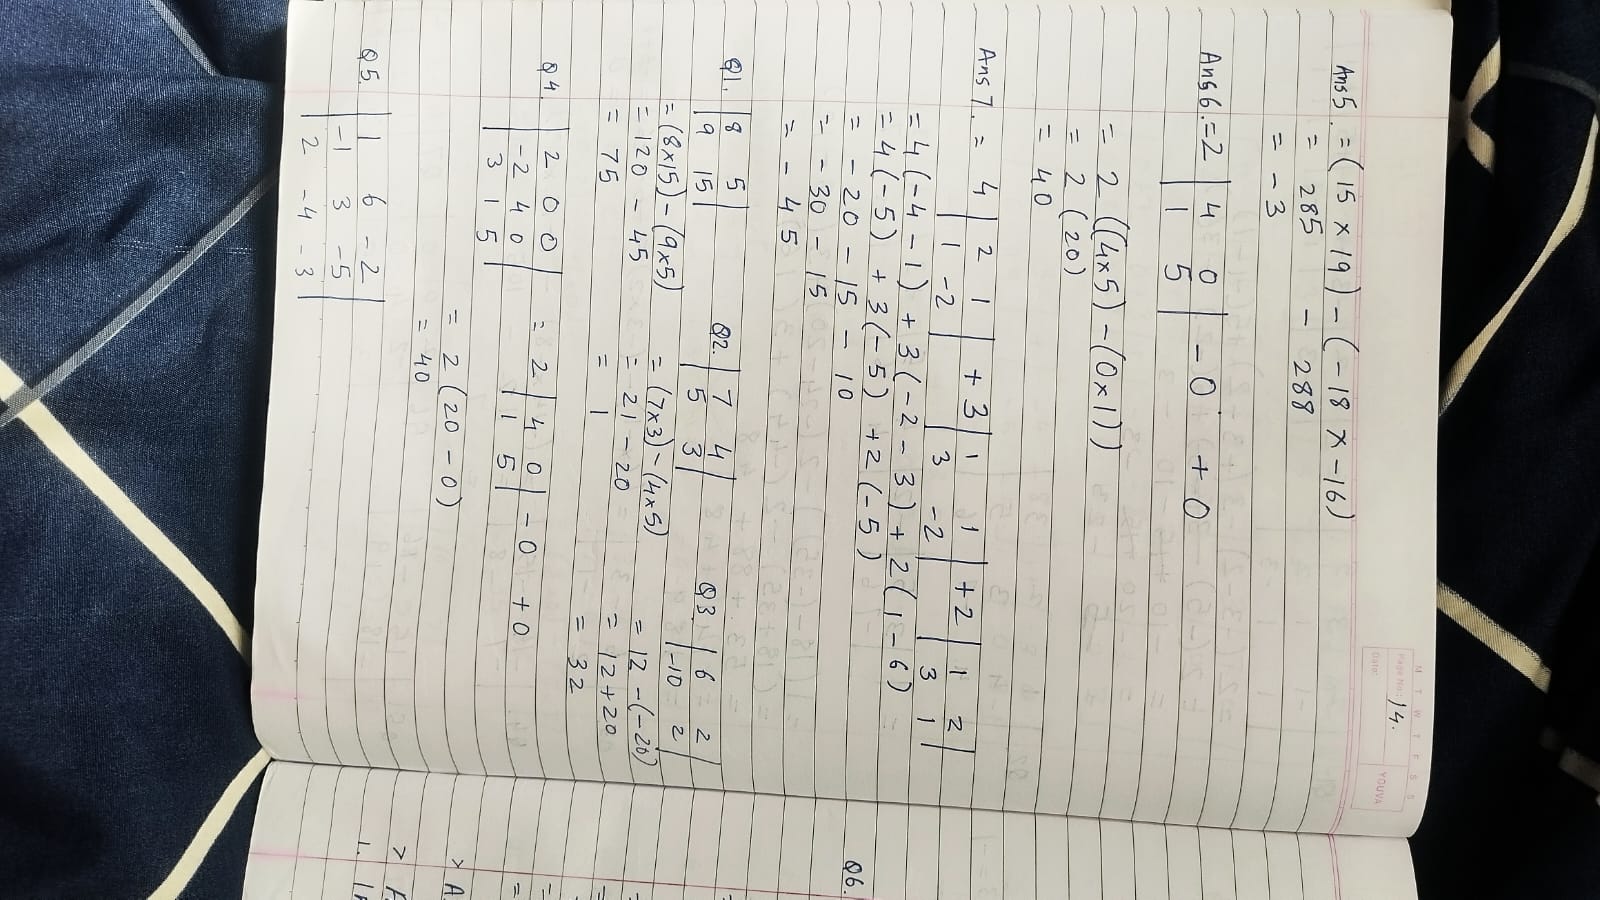 M T W T F S S
Page No.: 14.
Date:
YOUVA
Ans 5. = (15 × 19) - (-18 × -16)
= 285 - 288
= -3
Ans 6. = 2 | 4 0 | - 0 + 0
| 1 5 |
= 2 ((4×5) - (0×1))
= 2 (20)
= 40
Ans 7. = 4 | 2 1 | + 3 | 1 1 | + 2 | 1 2 |
| 1 -2 | | 3 -2 | | 3 1 |
= 4 (-4 - 1) + 3 (-2 - 3) + 2 (1 - 6)
= 4 (-5) + 3 (-5) + 2 (-5)
= -20 - 15 - 10
= -30 - 15
= -45
Q1. | 8 5 |
| 9 15 |
= (8×15) - (9×5)
= 120 - 45
= 75
Q2. | 7 4 |
| 5 3 |
= (7×3) - (4×5)
= 21 - 20
= 1
Q3. | 6 2 |
| -10 2 |
= 12 - (-20)
= 12 + 20
= 32
Q4. | 2 0 0 | = 2 | 4 0 | - 0 + 0
| -2 4 0 | | 1 5 |
| 3 1 5 |
= 2 (20 - 0)
= 40
Q5. | 1 6 -2 |
| -1 3 -5 |
| 2 -4 -3 |
Q6.